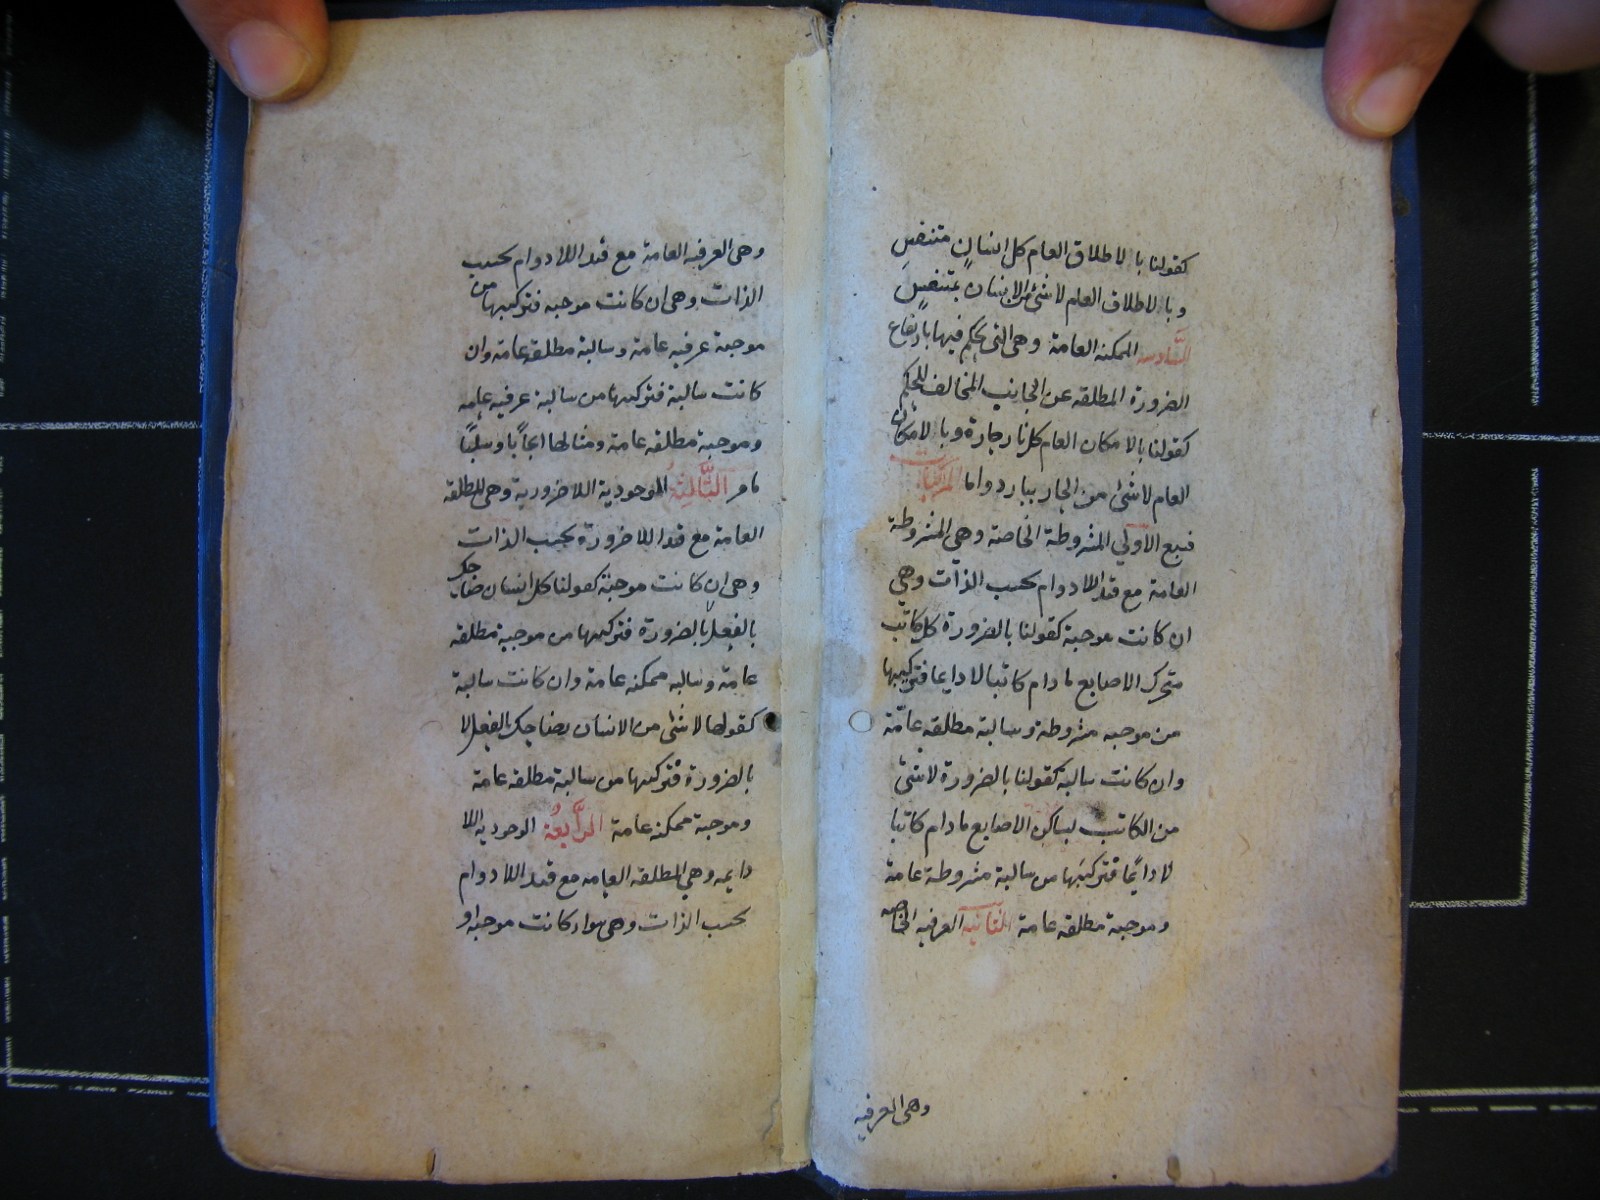 كقولنا بالاطلاق العام كل انسان متنفس
وبالاطلاق العام لا شئ من الانسان بمتنفس
السادسه الممكنه العامة وهى التى يحكم فيها بارتفاع
الضرورة المطلقه عن الجانب المخالف للحكم
كقولنا بالامكان العام كل نار حارة وبالامكان
العام لا شئ من الحار ببارد واما المركبات
فسبع الاولي المشروطة الخاصة وهي المشروطة
العامة مع قيد اللادوام بحسب الذات وهي
ان كانت موجبة كقولنا بالضرورة كل كاتب
متحرك الاصابع مادام كاتبا لا دايما فتركيبها
من موجبه مشروطة وسالبة مطلقه عامّة
وان كانت سالبة كقولنا بالضرورة لا شئ
من الكاتب بساكن الاصابع مادام كاتبا
لا دايمًا فتركيبها من سالبة مشروطة عامة
وموجبة مطلقه عامة الثانيه العرفيه الخاصه
وهى العرفيه
وهى العرفيه العامة مع قيد اللادوام بحسب
الذات وهى ان كانت موجبه فتركيبها من
موجبة عرفيه عامة وسالبة مطلقه عامة وان
كانت سالبة فتركيبها من سالبة عرفيه عامه
وموجبة مطلقه عامة ومثالها ايجاباً وسلبًا
مامر الثَّالِثَةُ الموجودية اللاضرورية وهى المطلقه
العامة مع قيد اللاضرورة بحسب الذات
وهى ان كانت موجبة كقولنا كل انسان ضاحك
بالفعل لا بالضرورة فتركيبها من موجبة مطلقه
عامة وسالبه ممكنه عامة وان كانت سالبة
كقولها لا شئ من الانسان بضاحك بالفعل لا
بالضرورة فتركيبها من سالبة مطلقه عامة
وموجبة ممكنه عامة الرَّابِعُة الوجوديه اللا
دايمه وهي المطلقه العامه مع قيد اللادوام
بحسب الذات وهى سواء كانت موجبه او